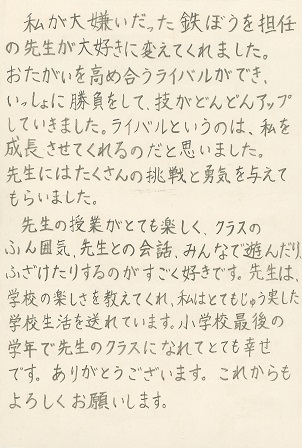 私が大嫌いだった鉄ぼうを担任
の先生が大好きに変えてくれました。
おたがいを高め合うライバルができ、
いっしょに勝負をして、技がどんどんアップ
していきました。ライバルというのは、私を
成長させてくれるのだと思いました。
先生にはたくさんの挑戦と勇気を与えて
もらいました。
先生の授業がとても楽しく、クラスの
ふん囲気、先生との会話、みんなで遊んだり、
ふざけたりするのがすごく好きです。先生は、
学校の楽しさを教えてくれ、私はとてもじゅう実した
学校生活を送れています。小学校最後の
学年で先生のクラスになれてとても幸せ
です。ありがとうございます。これからも
よろしくお願いします。